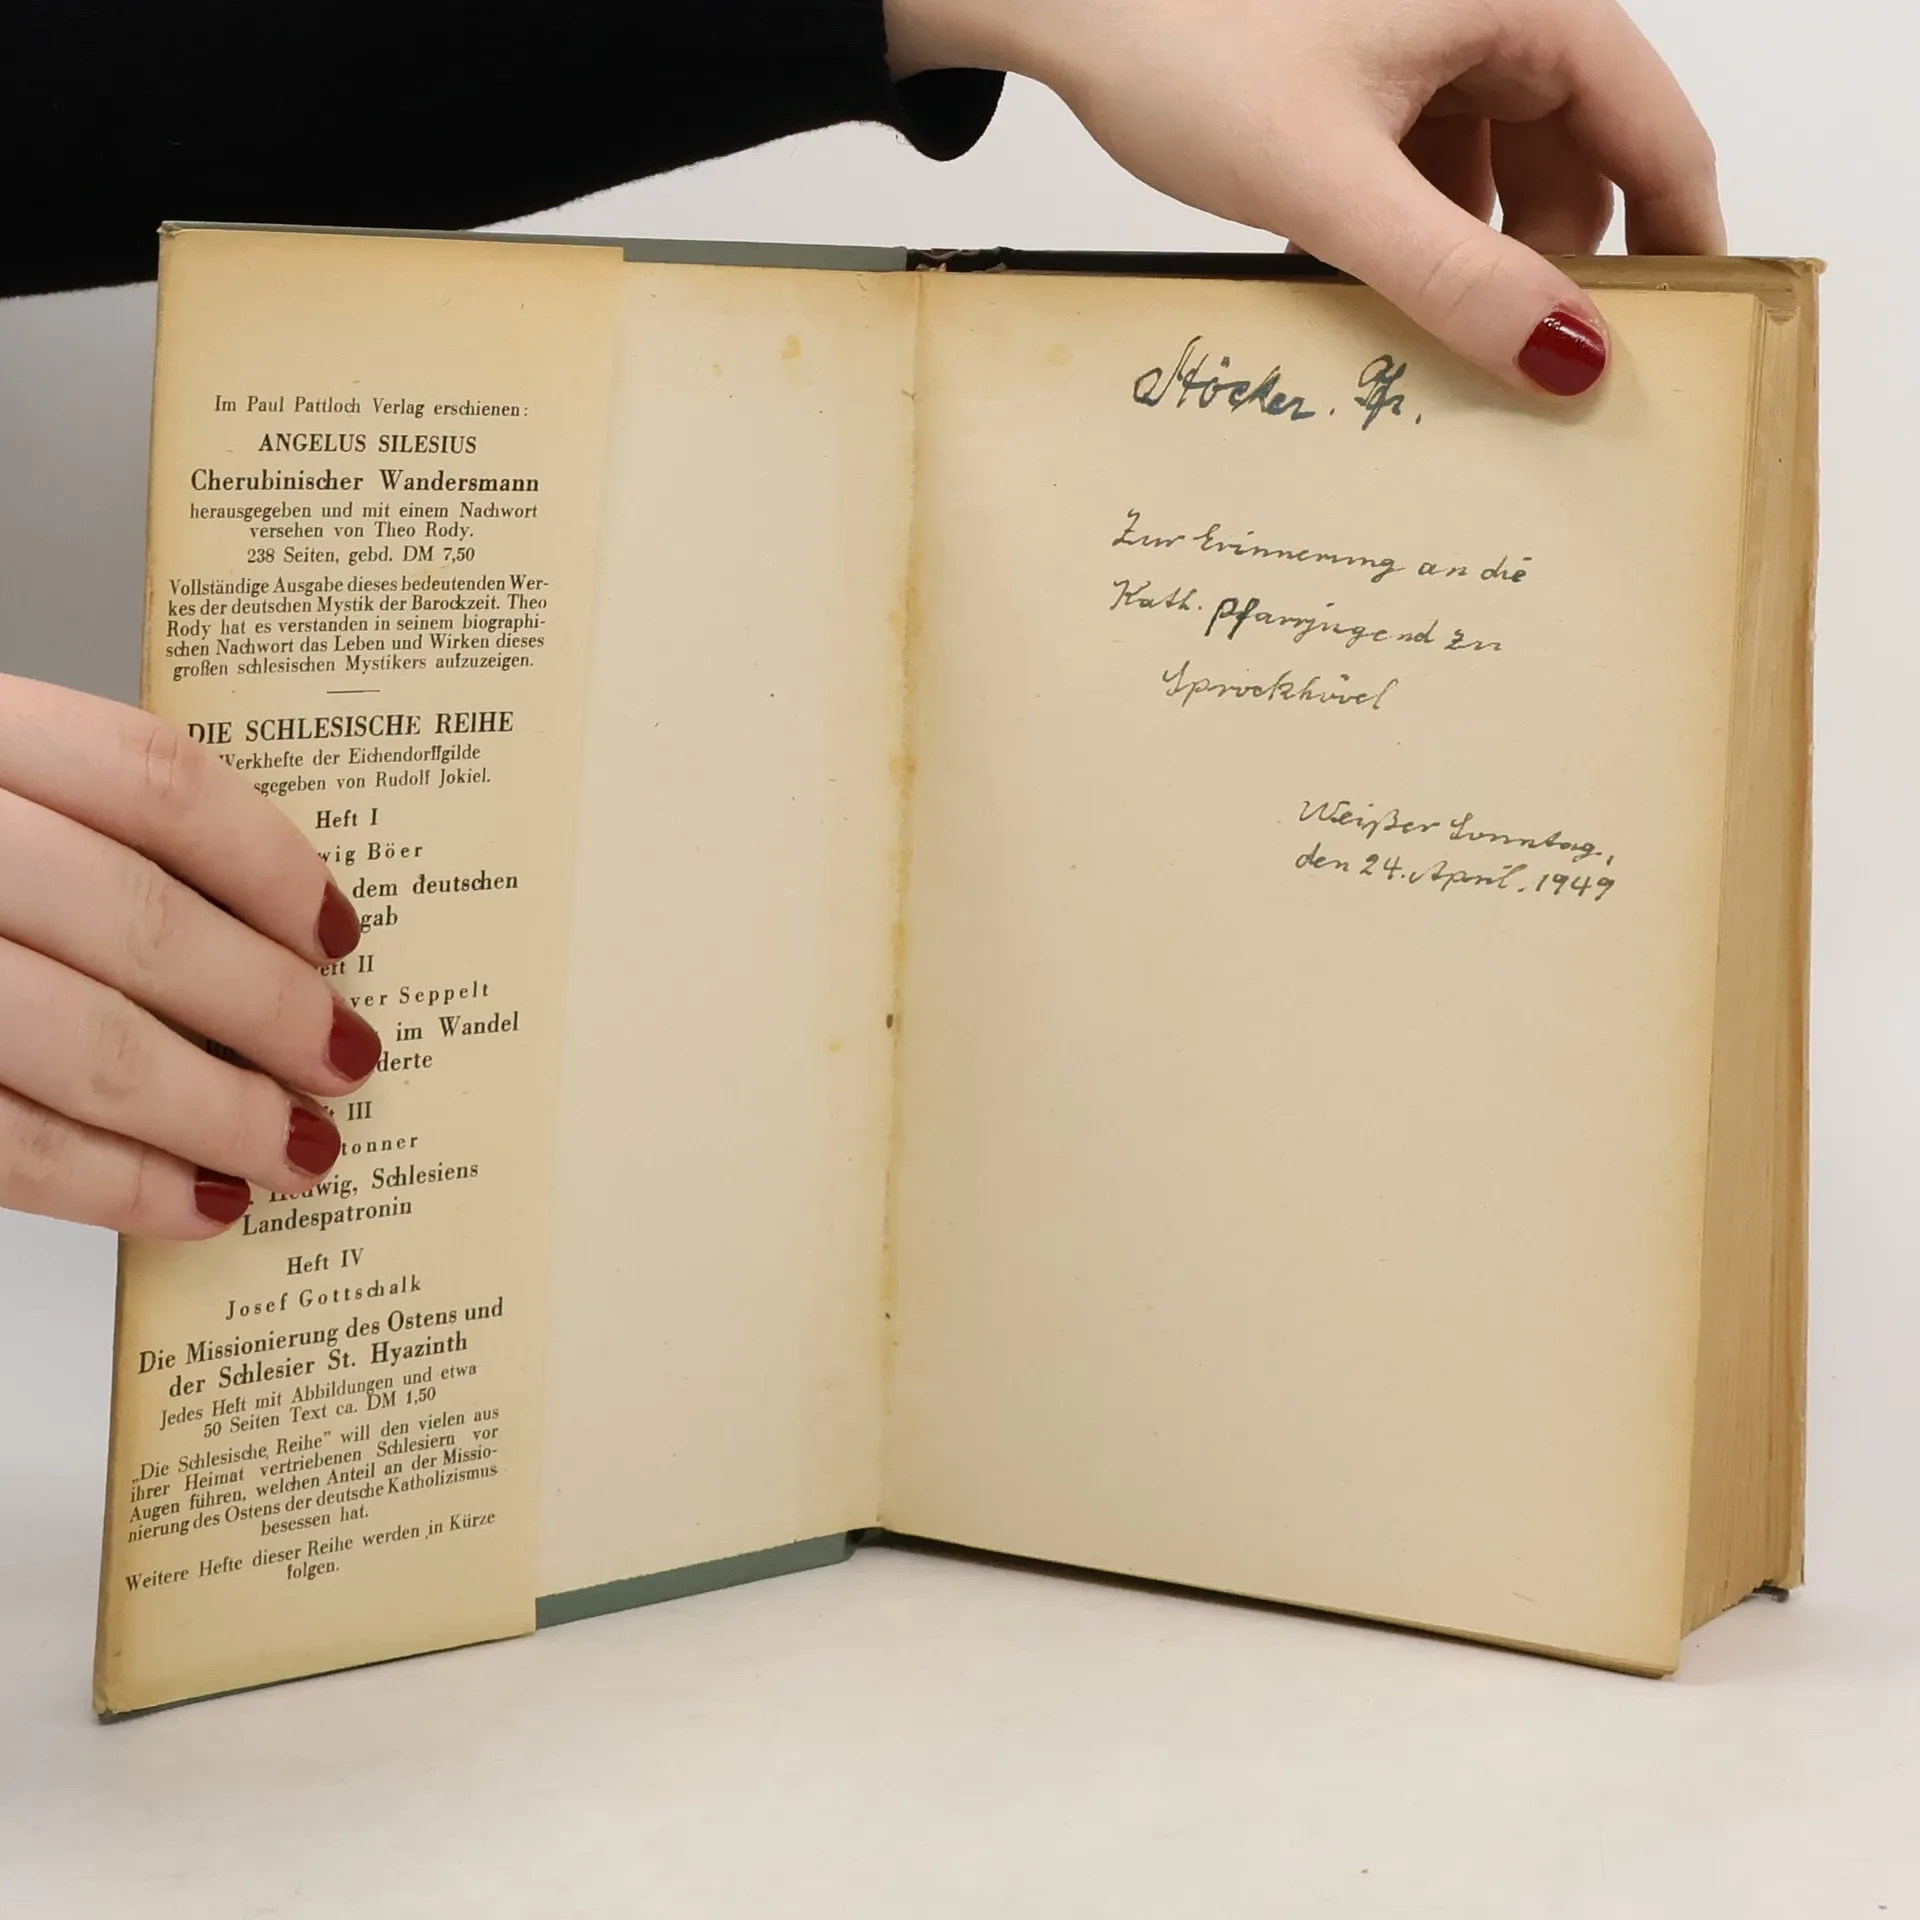 Im Paul Pattloch Verlag erschienen:
ANGELUS SILESIUS
Cherubinischer Wandersmann
herausgegeben und mit einem Nachwort
versehen von Theo Rody.
238 Seiten, gebd. DM 7,50
Vollständige Ausgabe dieses bedeutenden Wer-
kes der deutschen Mystik der Barockzeit. Theo
Rody hat es verstanden in seinem biographi-
schen Nachwort das Leben und Wirken dieses
großen schlesischen Mystikers aufzuzeigen.
DIE SCHLESISCHE REIHE
Werkhefte der Eichendorffgilde
sgegeben von Rudolf Jokiel.
Heft I
wig Böer
dem deutschen
gab
eft II
ver Seppelt
im Wandel
derte
III
tonner
Hedwig, Schlesiens
Landespatronin
Heft IV
Josef Gottschalk
Die Missionierung des Ostens und
der Schlesier St. Hyazinth
Jedes Heft mit Abbildungen und etwa
50 Seiten Text ca. DM 1,50
„Die Schlesische Reihe” will den vielen aus
ihrer Heimat vertriebenen Schlesiern vor
Augen führen, welchen Anteil an der Missio-
nierung des Ostens der deutsche Katholizismus
besessen hat.
Weitere Hefte dieser Reihe werden in Kürze
folgen.
Stöcker.
Zur Erinnerung an die
Kath. Pfarrjugend zu
Sprockhövel
Weißer Sonntag,
den 24. April. 1949